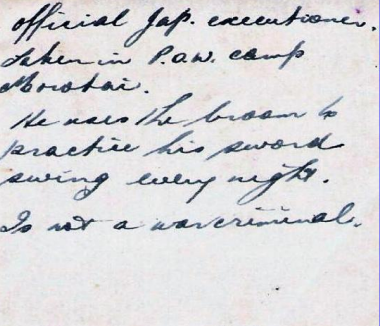 official Jap. executioner.
Taken in P.O.W. camp
Morotai.
He uses the broom to
practice his sword
swing every night.
Is not a war criminal.